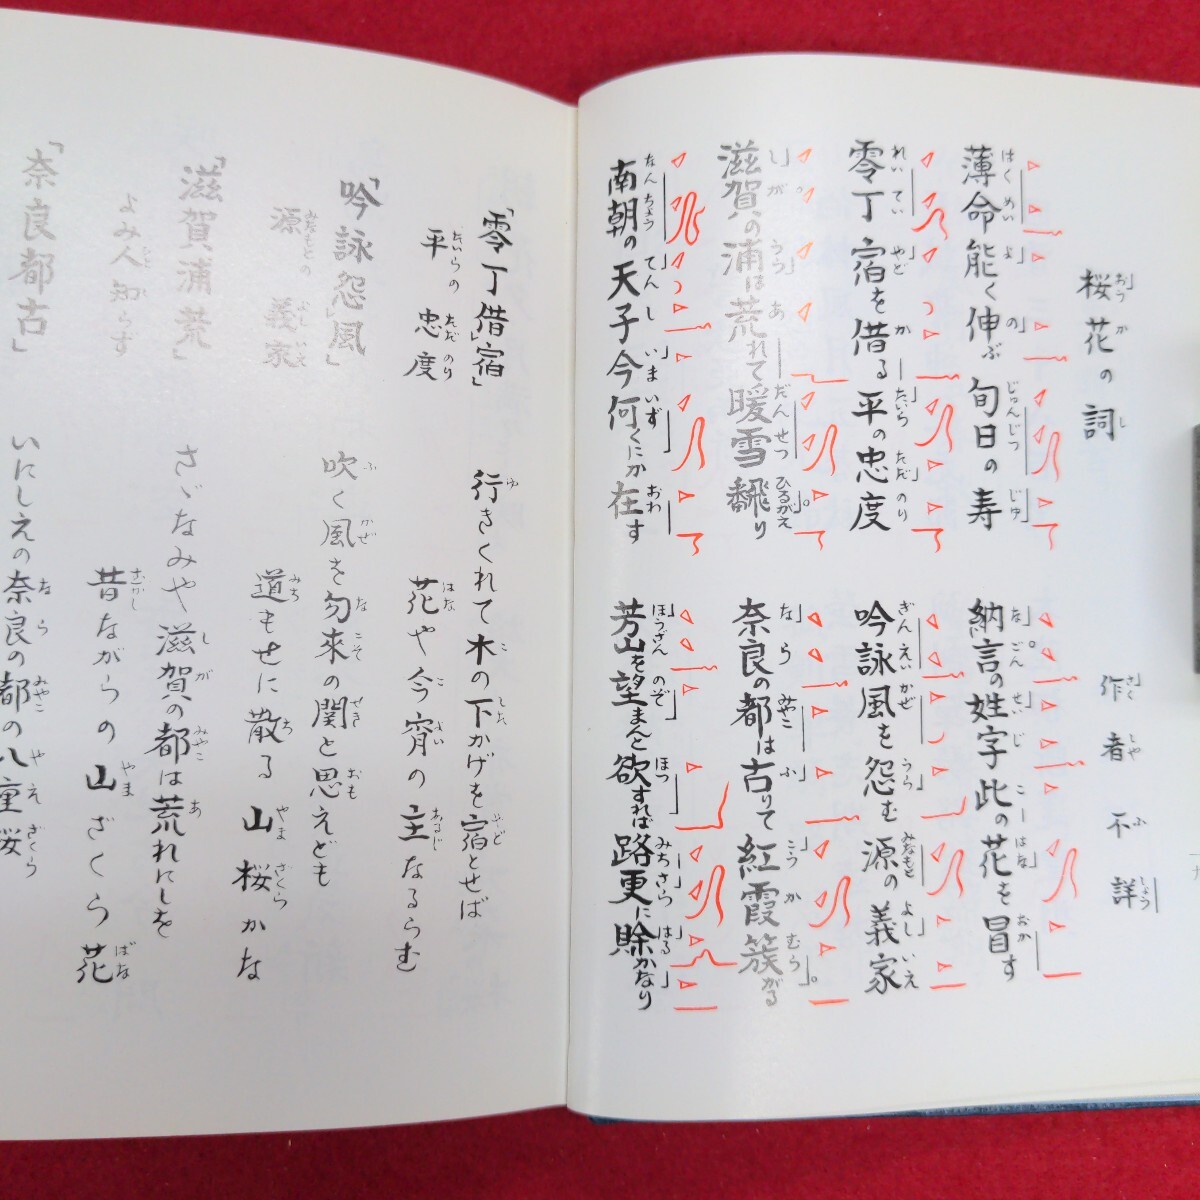 桜花の詞
作者不詳
薄命能く伸ぶ旬日の寿
納言の姓字此の花を冒す
零丁宿を借る平の忠度
吟詠風を怨む源の義家
滋賀の浦は荒れて暖雪翻り
奈良の都は古りて紅霞簇がる
南朝の天子今何くにか在す
芳山を望まんと欲すれば路更に賖かなり
「零丁借宿」
平忠度
行きくれて木の下かげを宿とせば
花や今宵の主なるらむ
「吟詠怨風」
源義家
吹く風を勿来の関と思えども
道もせに散る山桜かな
「滋賀浦荒」
よみ人知らず
さゞなみや滋賀の都は荒れにしを
昔ながらの山ざくら花
「奈良都古」
いにしえの奈良の都の八重桜